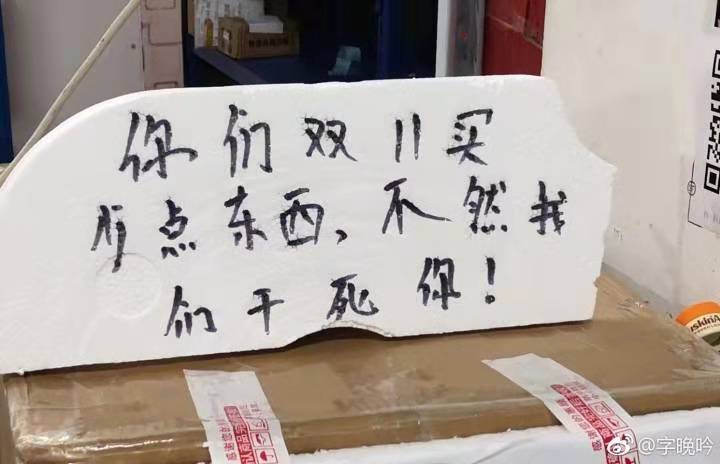 你们双11买
少点东西，不然我
们干死你！
@字晚吟